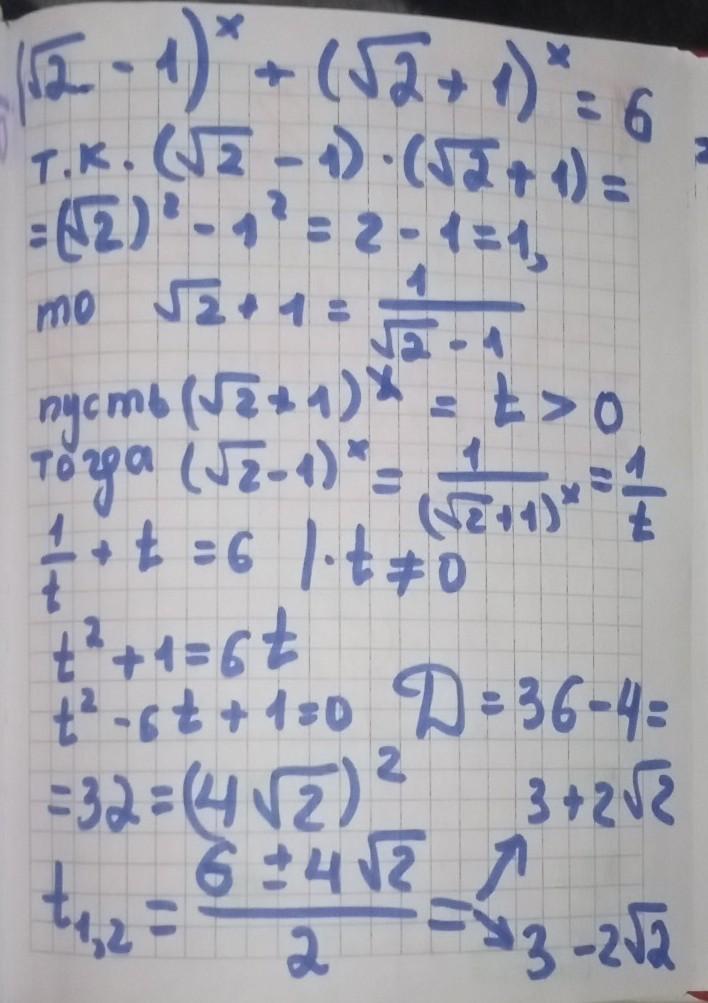 (√2 - 1)^x + (√2 + 1)^x = 6
т.к. (√2 - 1) · (√2 + 1) =
= (√2)² - 1² = 2 - 1 = 1,
то √2 + 1 = 1/(√2 - 1)
пусть (√2 + 1)^x = t > 0
тогда (√2 - 1)^x = 1/(√2 + 1)^x = 1/t
1/t + t = 6 | · t ≠ 0
t² + 1 = 6t
t² - 6t + 1 = 0 D = 36 - 4 =
= 32 = (4√2)²
t₁,₂ = (6 ± 4√2)/2 = ↗ 3 + 2√2
↘ 3 - 2√2